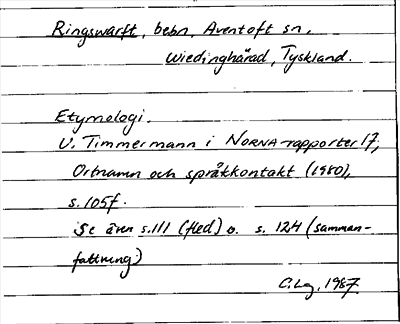 Ringswarft, bebn, Aventoft sn,
Wiedinghärad, Tyskland.
Etymologi.
U. Timmermann i NORNA-rapporter 17,
Ortnamn och språkkontakt (1980),
s. 105f.
Se även s. 111 (fled) o. s. 124 (samman-
fattning)
1987.